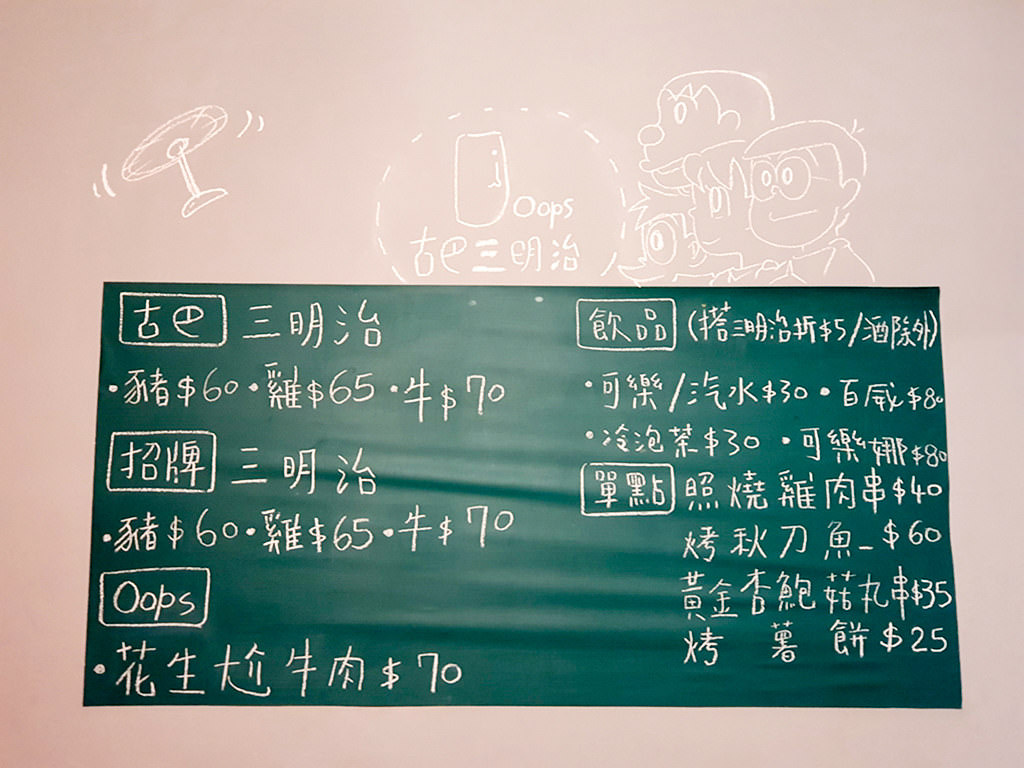 Oops
古巴三明治
古巴 三明治
·豬$60·雞$65·牛$70
招牌 三明治
·豬$60·雞$65·牛$70
Oops
·花生尬牛肉$70
飲品 (搭三明治折$5/酒除外)
·可樂/汽水$30·百威$80
·冷泡茶$30 ·可樂娜$80
單點 照燒雞肉串$40
烤秋刀魚_$60
黃金杏鮑菇丸串$35
烤薯餅$25